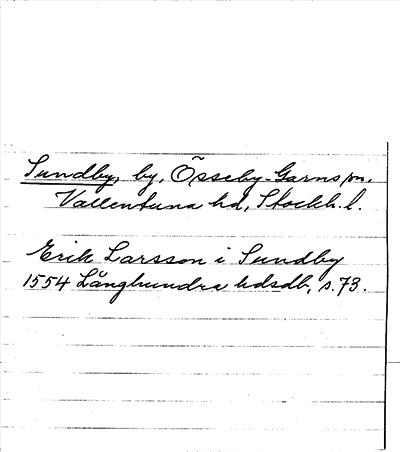 Sundby, by, Össeby-Garns sn,
Vallentuna hd, Stockh. l.
Erik Larsson i Sundby
1554 Långhundra hdsdb, s. 73.